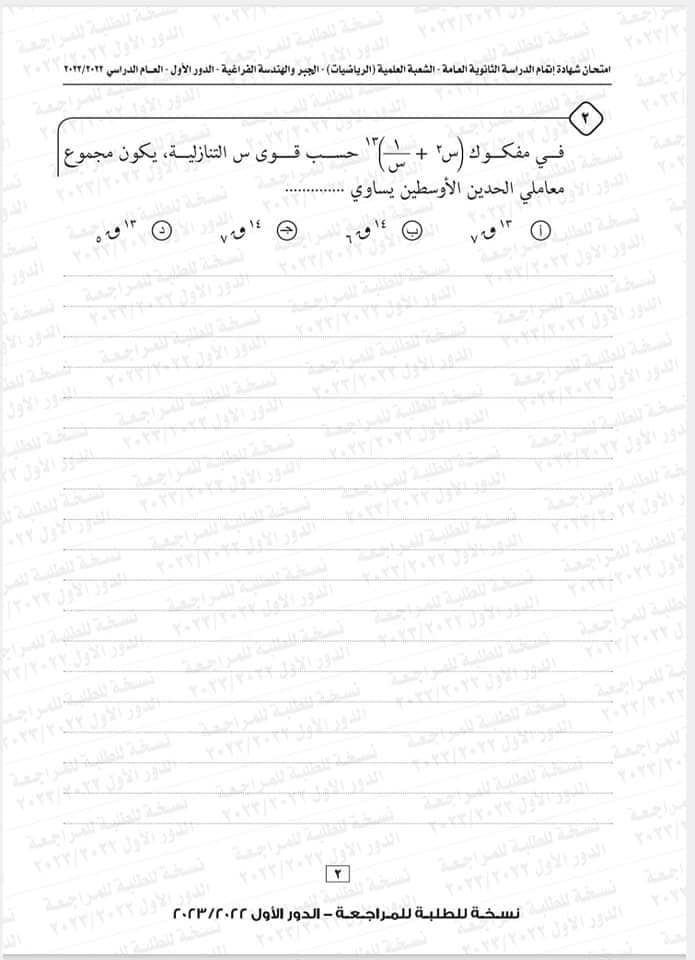 امتحان شهادة إتمام الدراسة الثانوية العامة - الشعبة العلمية (الرياضيات) - الجبر والهندسة الفراغية - الدور الأول - العـام الدراسي ٢٠٢٣/٢٠٢٢
٢
في مفكوك (س٢ + ١/س)١٣ حسب قوى س التنازلية، يكون مجموع
معاملي الحدين الأوسطين يساوي ..............
أ ١٣ق٧ ب ١٤ق٦ جـ ١٤ق٧ د ١٣ق٥
٢
نسخة للطلبة للمراجعة – الدور الأول ٢٠٢٣/٢٠٢٢